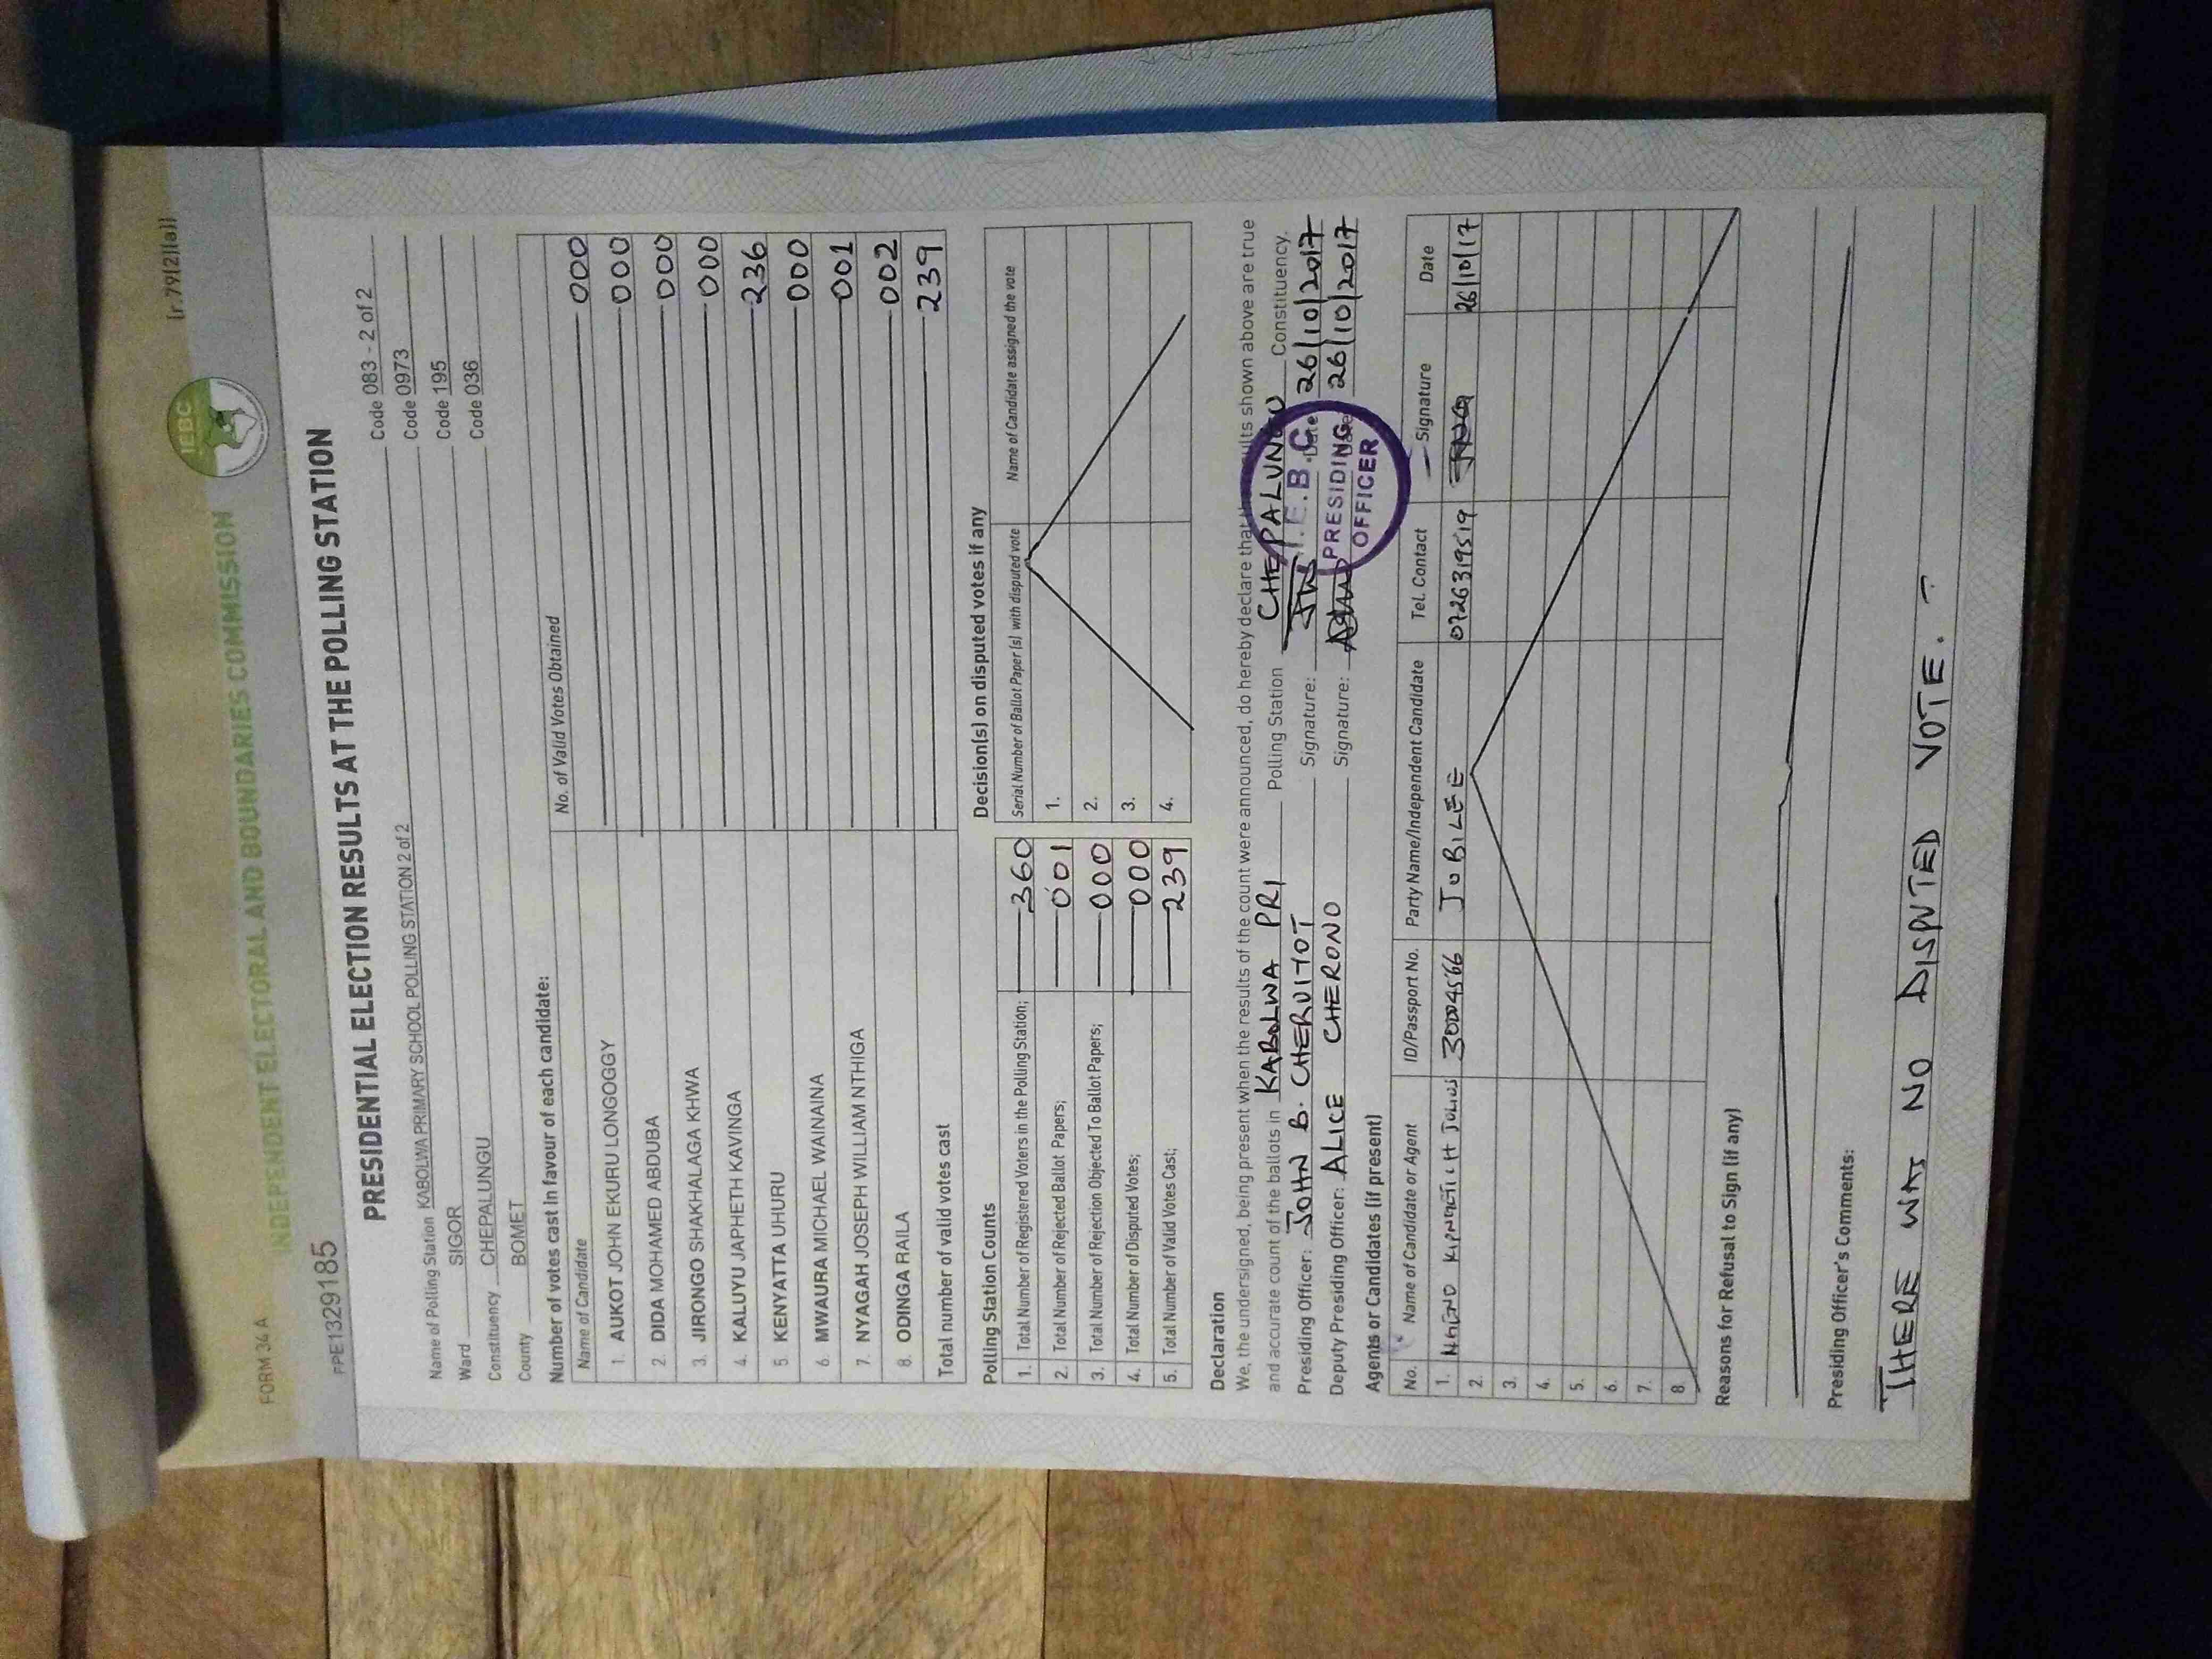 FORM 34 A
[r.79(2)(a)]
IEBC
INDEPENDENT ELECTORAL AND BOUNDARIES COMMISSION
FPE1329185
PRESIDENTIAL ELECTION RESULTS AT THE POLLING STATION
Name of Polling Station KABOLWA PRIMARY SCHOOL POLLING STATION 2 of 2 Code 083 - 2 of 2
Ward SIGOR Code 0973
Constituency CHEPALUNGU Code 195
County BOMET Code 036
Number of votes cast in favour of each candidate:
Name of Candidate No. of Valid Votes Obtained
1. AUKOT JOHN EKURU LONGOGGY 000
2. DIDA MOHAMED ABDUBA 000
3. JIRONGO SHAKHALAGA KHWA 000
4. KALUYU JAPHETH KAVINGA 000
5. KENYATTA UHURU 236
6. MWAURA MICHAEL WAINAINA 000
7. NYAGAH JOSEPH WILLIAM NTHIGA 001
8. ODINGA RAILA 002
Total number of valid votes cast 239
Polling Station Counts
1. Total Number of Registered Voters in the Polling Station; 360
2. Total Number of Rejected Ballot Papers; 001
3. Total Number of Rejection Objected To Ballot Papers; 000
4. Total Number of Disputed Votes; 000
5. Total Number of Valid Votes Cast; 239
Decision(s) on disputed votes if any
Serial Number of Ballot Paper (s) with disputed vote Name of Candidate assigned the vote
1.
2.
3.
4.
Declaration
We, the undersigned, being present when the results of the count were announced, do hereby declare that the results shown above are true
and accurate count of the ballots in KABOLWA PRI Polling Station CHEPALUNGU Constituency.
Presiding Officer: JOHN B. CHERUIYOT Signature: Date 26/10/2017
Deputy Presiding Officer: ALICE CHERONO Signature: Date 26/10/2017
I.E.B.C
PRESIDING
OFFICER
Agents or Candidates (if present)
No. Name of Candidate or Agent ID/Passport No. Party Name/Independent Candidate Tel. Contact Signature Date
1. JULIUS 30004566 JUBILEE 0726319519 26/10/17
2.
3.
4.
5.
6.
7.
8.
Reasons for Refusal to Sign (if any)
Presiding Officer's Comments:
THERE WAS NO DISPUTED VOTE.